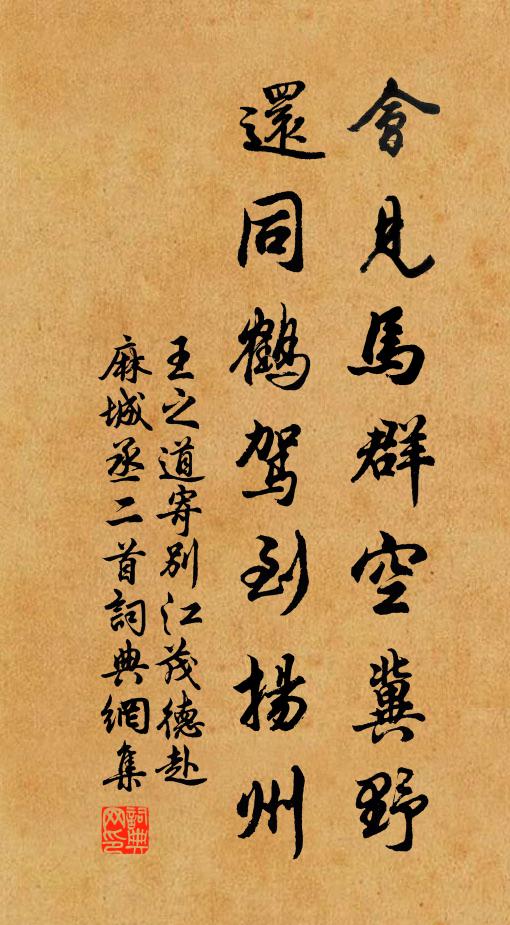 會見馬群空冀野
還同鶴駕到揚州
王之道寄別江茂德赴
麻城丞二首詞典網集
詞典
网印